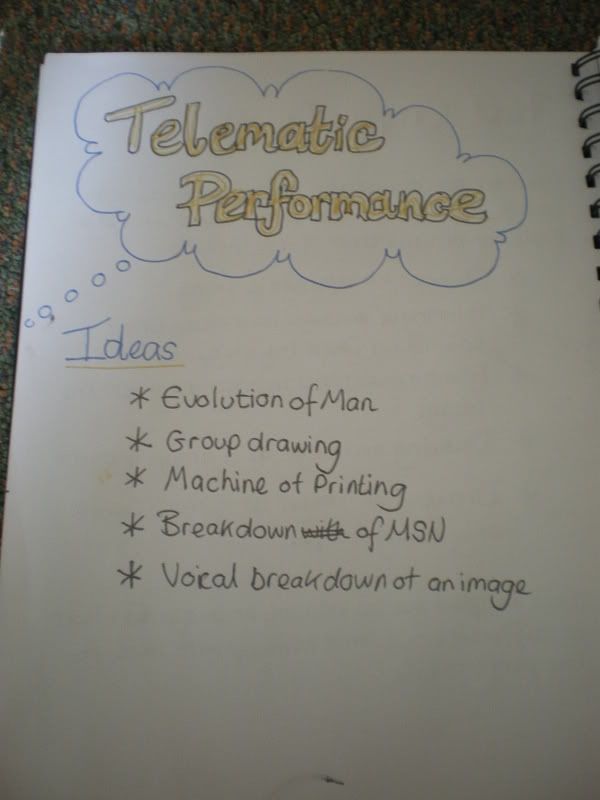 Telematic
Performance
Ideas
* Evolution of Man
* Group drawing
* Machine of Printing
* Breakdown with of MSN
* Voical breakdown of an image